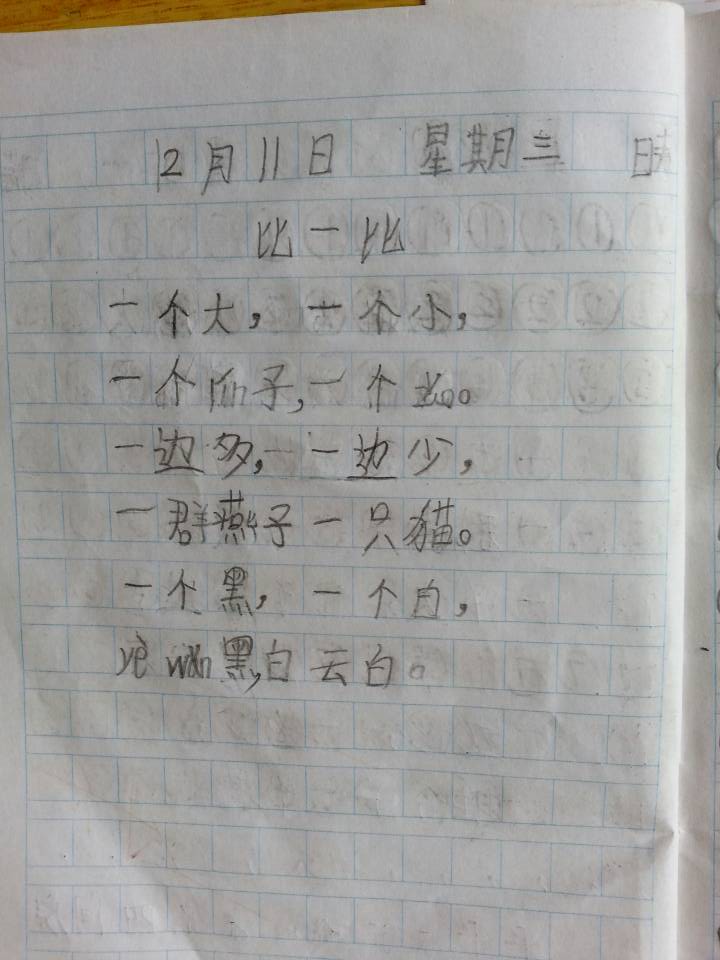 12月11日 星期三 晴
比一比
一个大，一个小，
一个子，一个。
一边多，一边少，
一群燕子一只猫。
一个黑，一个白，
yè wǎn黑，白云白。